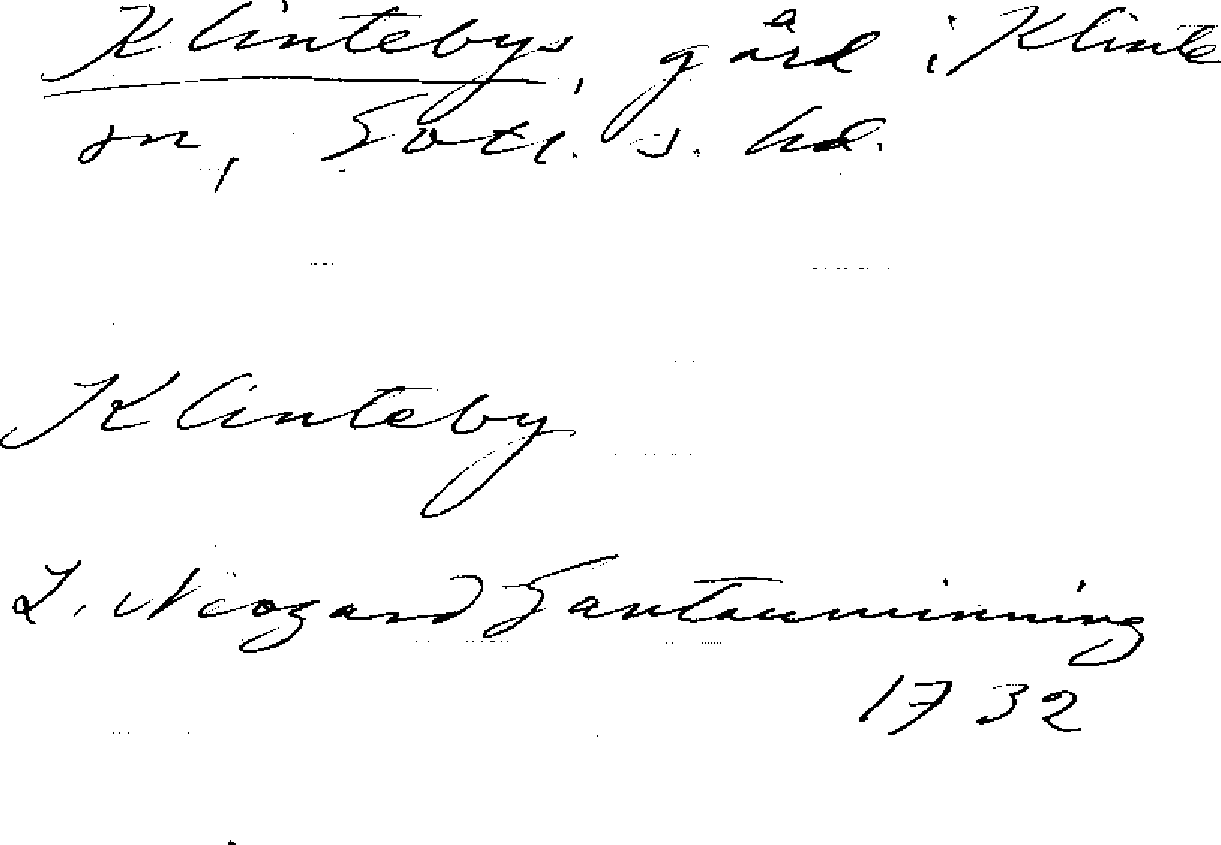 Klintebys, gård i Klinte
sn, Gotl. s. hd.
Klinteby
L. Neogard Gautauminning
1732